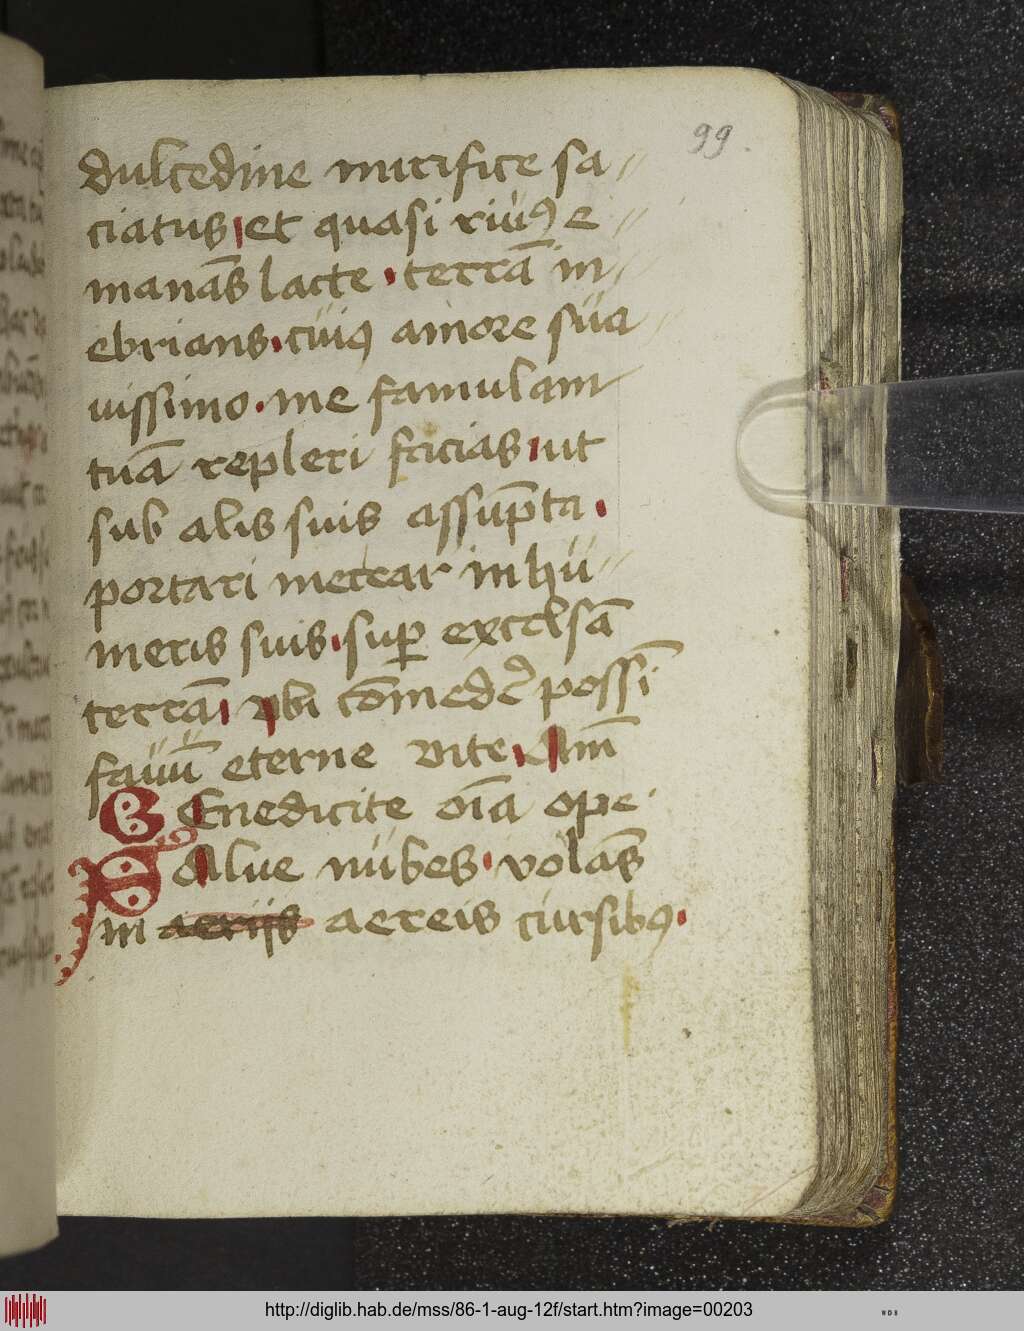 99
dulcedine mirifice sa//
ciatus et quasi riuꝰ e//
manās lacte · terrā in//
ebrians · cuiꝰ amore sua//
uissimo · me famulam
tuā repleri facias ut
sub alis suis assūpta ·
portari merear in hu//
meris suis · sup̄ excelsā
terrā ubi cōmedē possī
fauū eterne vite · Am̄
BEnedicite oīa ope·
SAlue nubes · volās
in aeriis aereis cursibꝰ ·
http://diglib.hab.de/mss/86-1-aug-12f/start.htm?image=00203